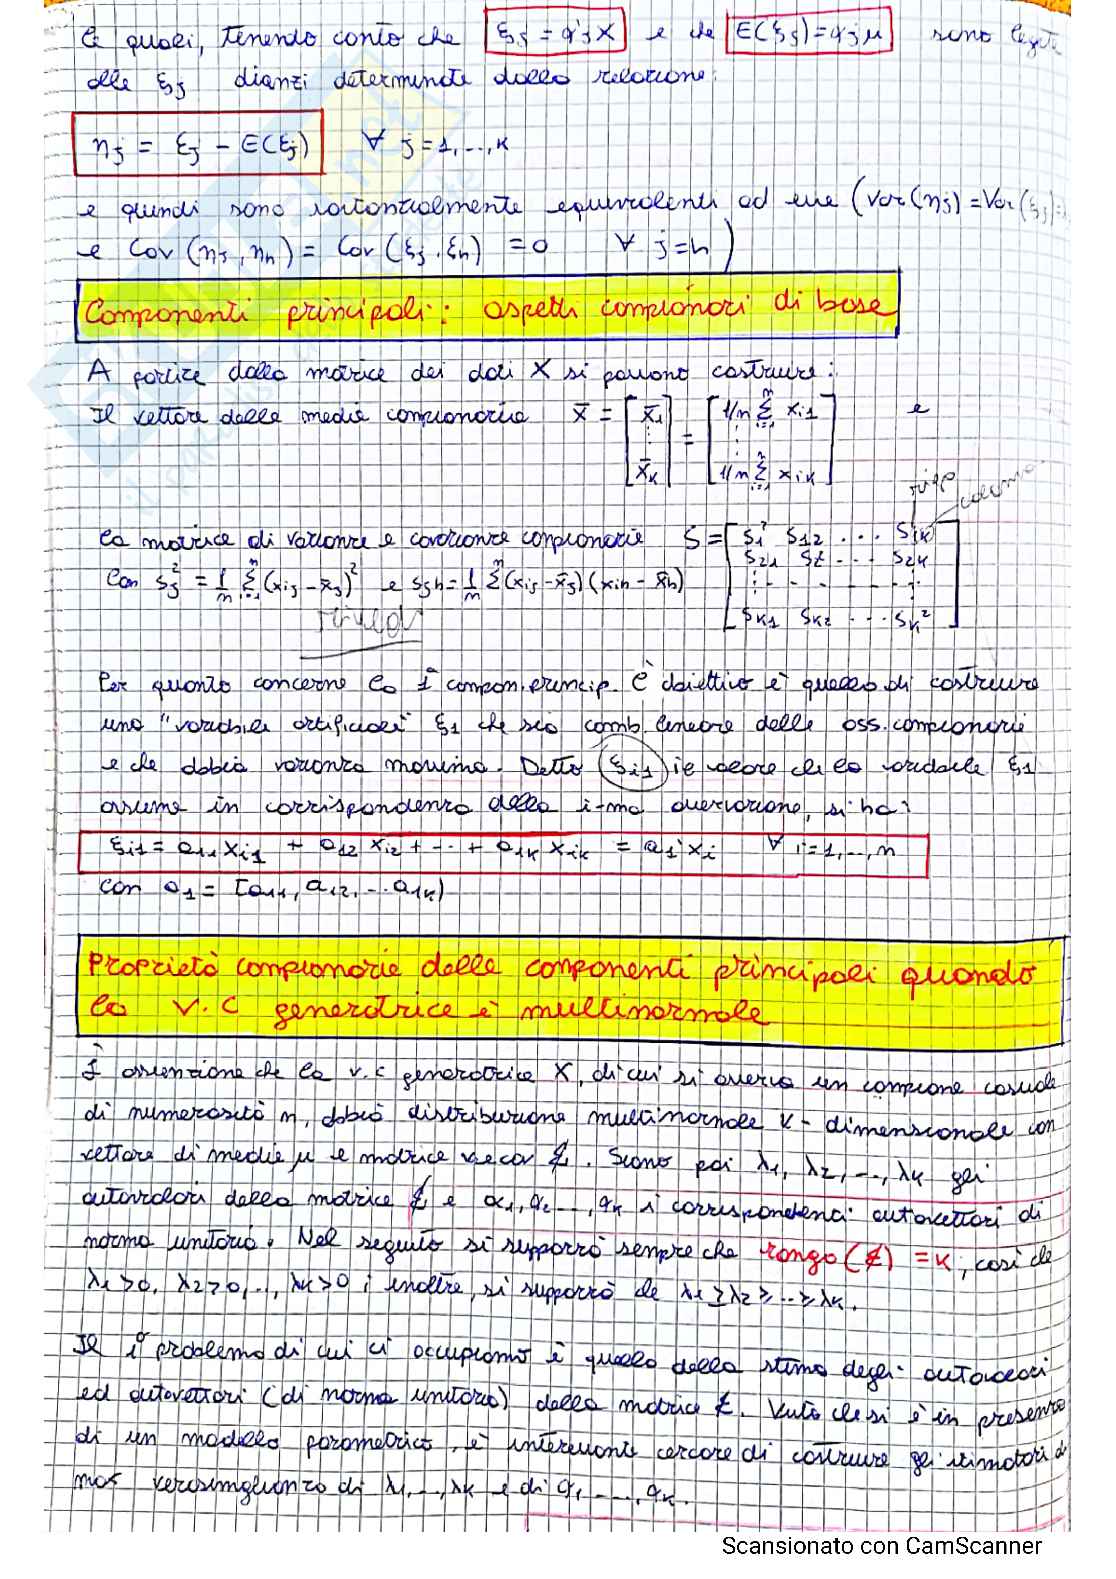 le quali, tenendo conto che ξj = α'jX e che E(ξj) = α'jμ sono legate
alle ξj dianzi determinate dalla relazione:
ηj = ξj - E(ξj) ∀ j=1,..,k
e quindi sono sostanzialmente equivalenti ad esse (Var(ηj) = Var(ξj)
e Cov(ηj, ηh) = Cov(ξj, ξh) = 0 ∀ j=h)
Componenti principali: aspetti campionari di base
A partire dalla matrice dei dati X si possono costruire:
Il vettore delle medie campionarie x̄ = [x̄1 ⋮ x̄k] = [1/n Σ xi1 ⋮ 1/n Σ xik] e
riga colonna
la matrice di varianze e covarianze campionarie S = [s1² s12 ... s1k
s21 s2 ... s2k
con sj² = 1/n Σ(xij - x̄j)² e sjh = 1/n Σ(xij - x̄j)(xih - x̄h)
sk1 sk2 ... sk²]
Per quanto concerne la 1ª compon. princip. l'obiettivo è quello di costruire
una "variabile artificiale" ξ1 che sia comb. lineare delle oss. campionarie
e che abbia varianza massima. Detto ξi1 il valore che la variabile ξ1
assume in corrispondenza della i-ma osservazione, si ha:
ξi1 = a11 xi1 + a12 xi2 + ... + a1k xik = a1' xi ∀ i=1,..,n
con a1 = [a11, a12, ... a1k)
Proprietà campionarie delle componenti principali quando
la v.c generatrice è multinormale
L'assunzione che la v.c generatrice X, di cui si osserva un campione casuale
di numerosità n, abbia distribuzione multinormale k-dimensionale con
vettore di medie μ e matrice varcov Σ. Siano poi λ1, λ2, .., λk gli
autovalori della matrice Σ e α1, α2 .., αk i corrispondenti autovettori di
norma unitaria. Nel seguito si supporrà sempre che rango(Σ) = k, così che
λ1>0, λ2>0,.., λk>0; inoltre, si supporrà che λ1≥λ2≥..≥λk.
Il 1° problema di cui ci occupiamo è quello della stima degli autovalori
ed autovettori (di norma unitaria) della matrice Σ. Visto che si è in presenza
di un modello parametrico, è interessante cercare di costruire gli stimatori di
max verosimiglianza di λ1,..., λk e di α1, ..., αk.
Scansionato con CamScanner